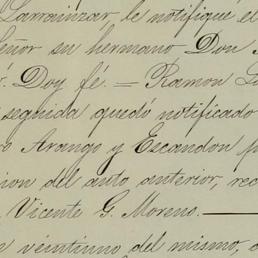 Larrainzar, le notifiqué el
señor su hermano Don
Doy fé. = Ramon
seguida quedó notificado
Arango y Escandon
cion del auto anterior, rec
Vicente G. Moreno.
veintiuno del mismo,